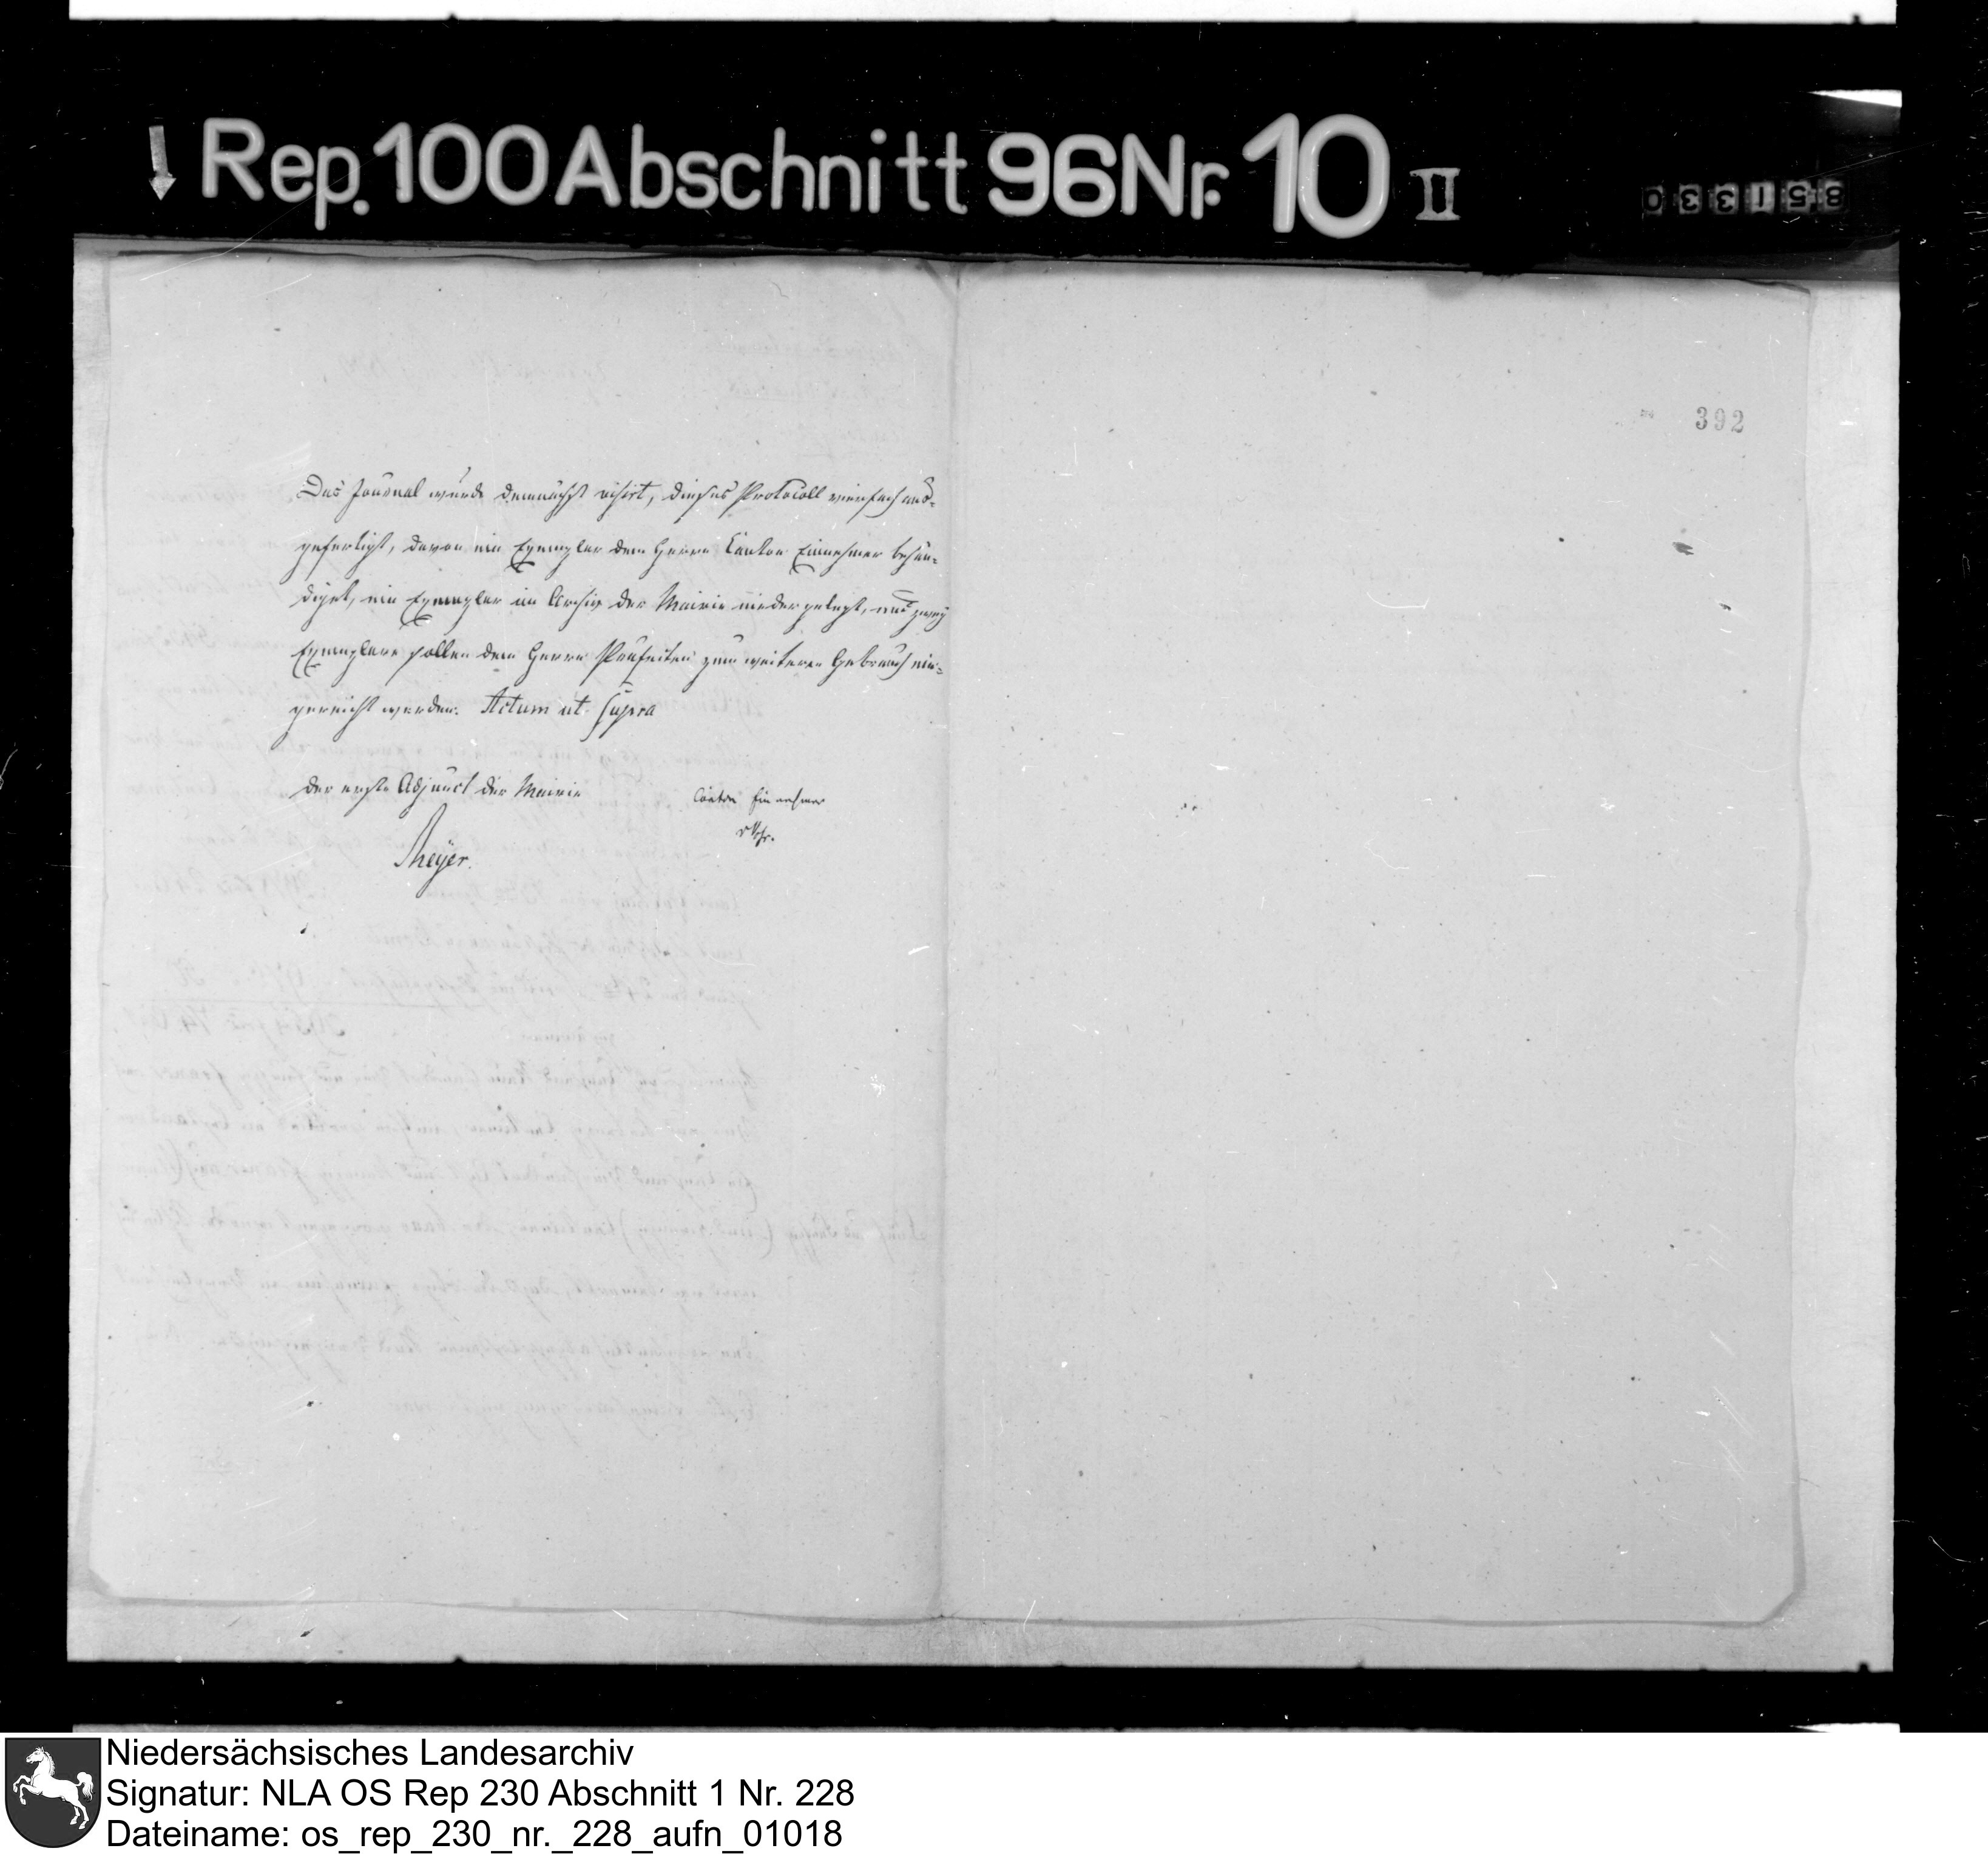 Rep. 100 Abschnitt 96 Nr. 10 II
0 3 3 1 5 8
392
Das Journal wurde demnächst visirt, dieses Protocoll vierfach aus-
gefertigt, davon ein Exemplar dem Herrn Canton Einnehmer behän-
diget, ein Exemplar im Archiv der Mairie niedergelegt, und zwey
Exemplare sollen dem Herrn Praefecten zum weiteren Gebrauch ein-
gereicht werden. Actum ut supra
Der erste Adjunct der Mairie
Meyer.
Canton Einnehmer
Niedersächsisches Landesarchiv
Signatur: NLA OS Rep 230 Abschnitt 1 Nr. 228
Dateiname: os_rep_230_nr._228_aufn_01018